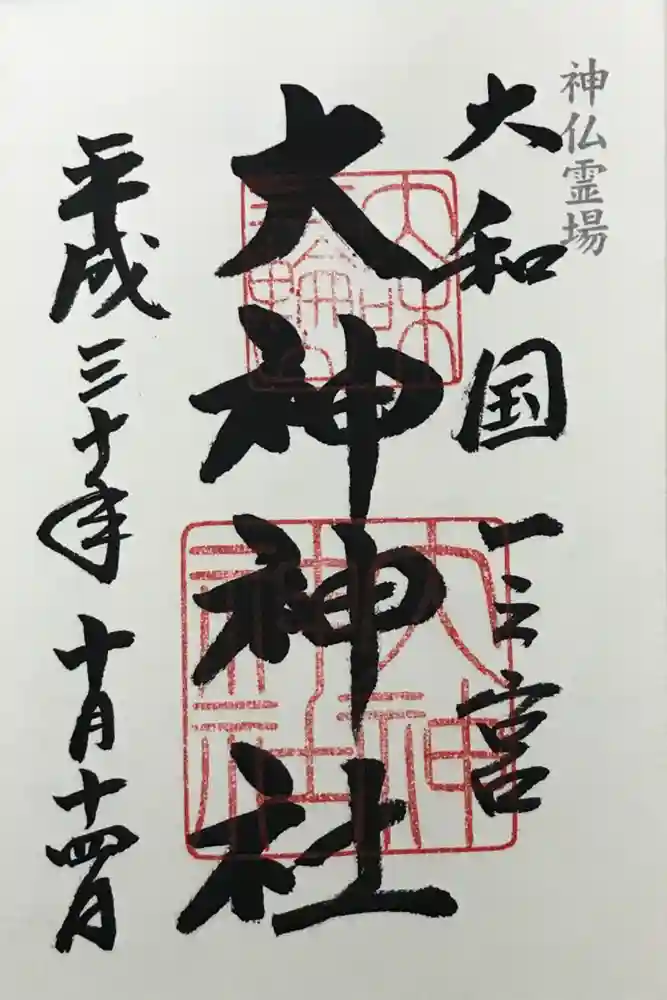 神仏霊場
大和国一之宮
大神神社
平成三十年十月十四日
大神
神社